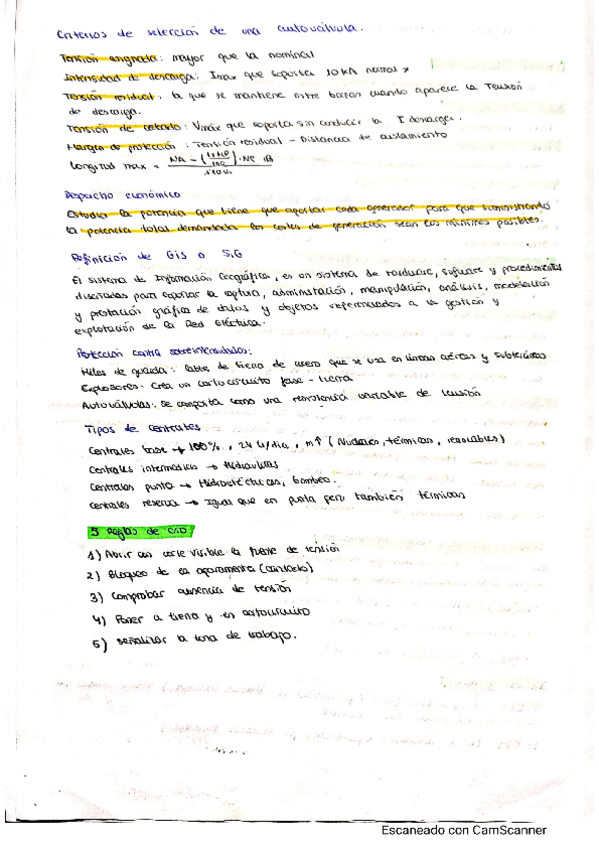 Criterios de selección de una autoválvula.
Tensión asignada: mayor que la nominal
Intensidad de descarga: Imax que soporta 10 kA normal
Tensión residual: la que se mantiene entre bornas cuando aparece la Tensión
de descarga.
Tensión de cebado: Vmáx que soporta sin conducir la I descarga.
Margen de protección: Tensión residual - Distancia de aislamiento
Longitud max =
Despacho económico
Estudia la potencia que tiene que aportar cada generador para que suministrando
la potencia total demandada los costes de generación sean los mínimos posibles.
Definición de GIS o SIG
El sistema de Información Geográfica, es un sistema de hardware, software y procedimientos
diseñados para soportar la captura, administración, manipulación, análisis, modelación
y gráfica de datos y objetos referenciados a la gestión y
explotación de la Red Eléctrica.
Protección contra sobreintensidades:
Hilos de guarda: cable de tierra de acero que se usa en líneas aéreas y subterráneas
Explosores: Crea un cortocircuito fase - tierra
Autoválvulas: se comporta como una resistencia variable de tensión
Tipos de centrales
Centrales base → 100%, 24 h/dia, m↑ (Nucleares, térmicas, renovables)
Centrales intermedias → Hidraulicas
Centrales punta → Hidroeléctricas, bombeo.
Centrales reserva → Igual que en punta pero también térmicas
5 Reglas de oro
1) Abrir con corte visible la fuente de tensión
2) Bloqueo de la aparamenta (candado)
3) Comprobar ausencia de tensión
4) Poner a tierra y en cortocircuito
5) Señalizar la zona de trabajo.
Escaneado con CamScanner